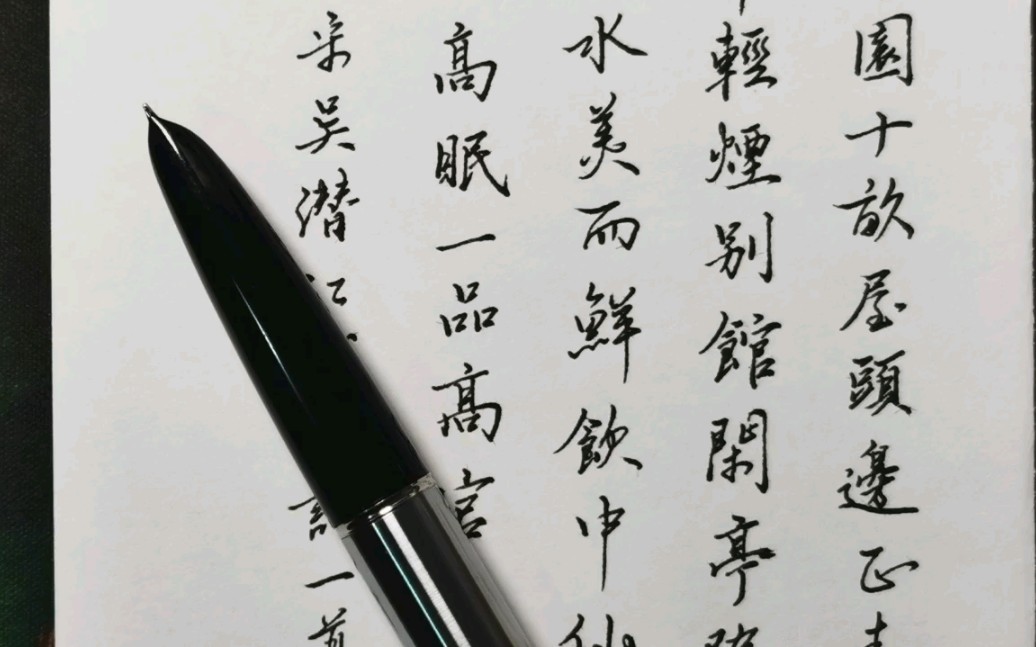 園十畝屋頭邊正
輕煙別館閑亭
水美而鮮飲中仙
高眠一品高官
宋吳潛
一首